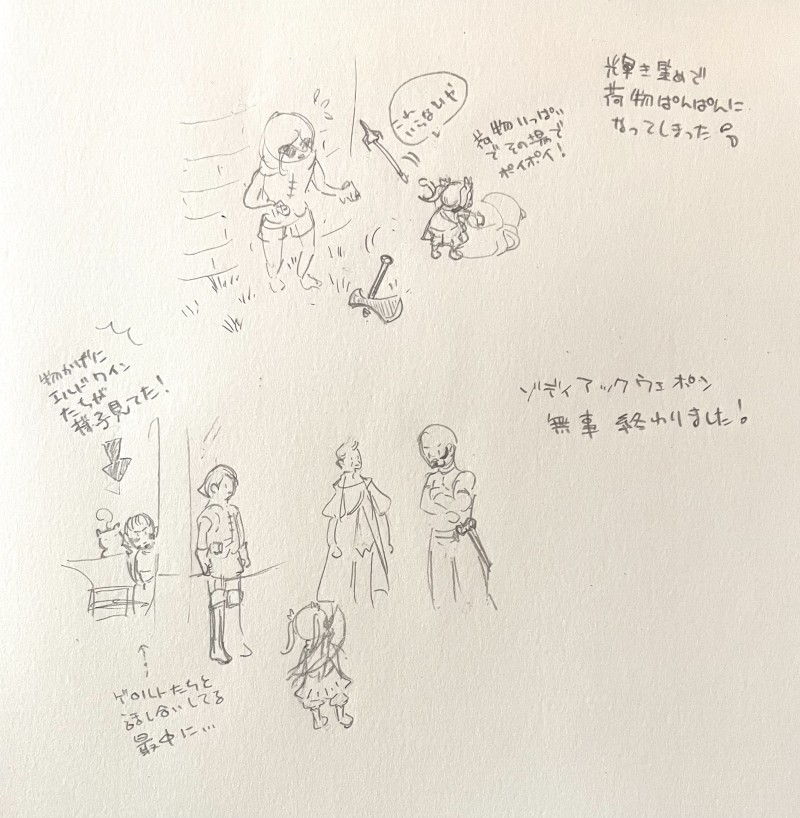 輝き集めで
荷物ぱんぱんに
なってしまった
これ
いらないや
荷物いっぱい
でその場で
ポイポイ!
物かげに
エルドウィン
たちが
様子見てた!
ゾディアックウェポン
無事 終わりました!
ゲイルトたちと
話し合いしてる
最中に…